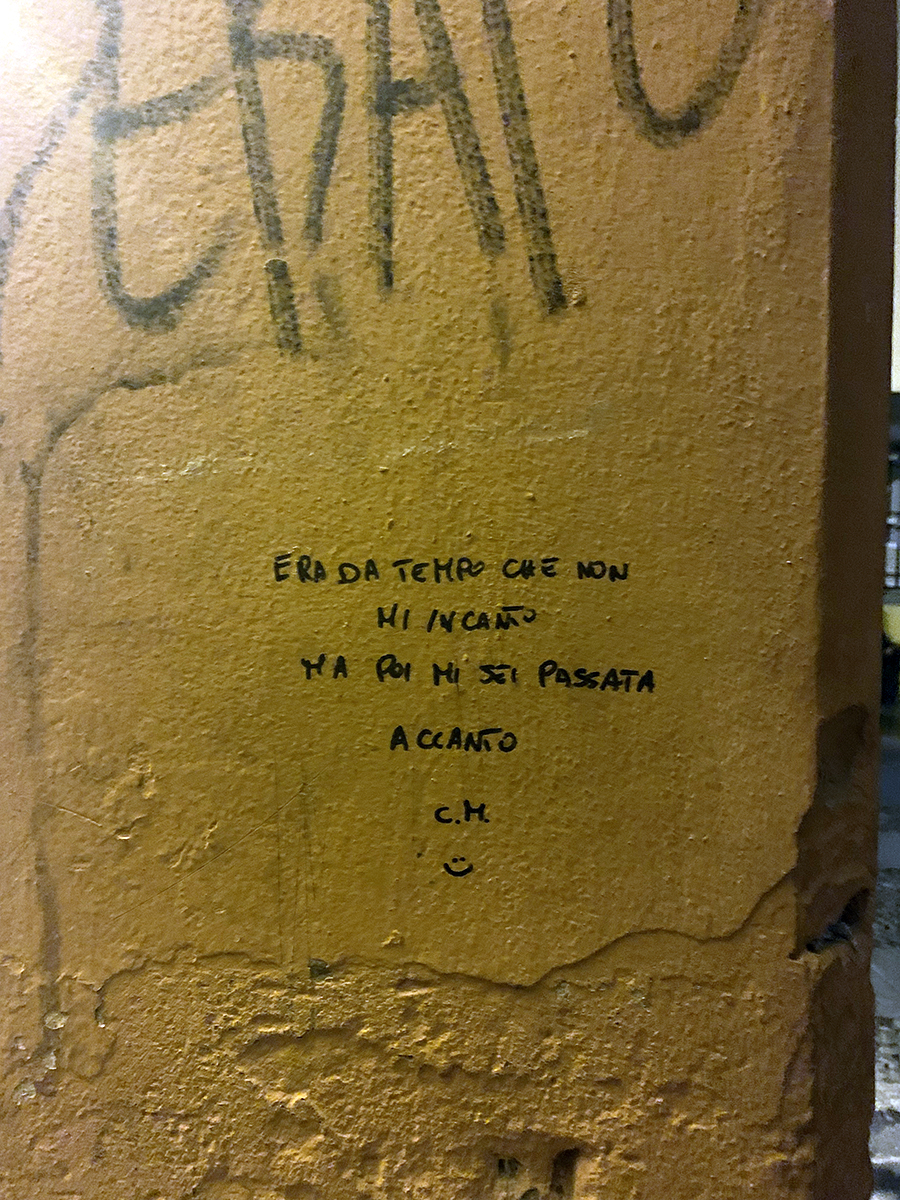 ERA DA TEMPO CHE NON
MI INCANTO
MA POI MI SEI PASSATA
ACCANTO
C.M.